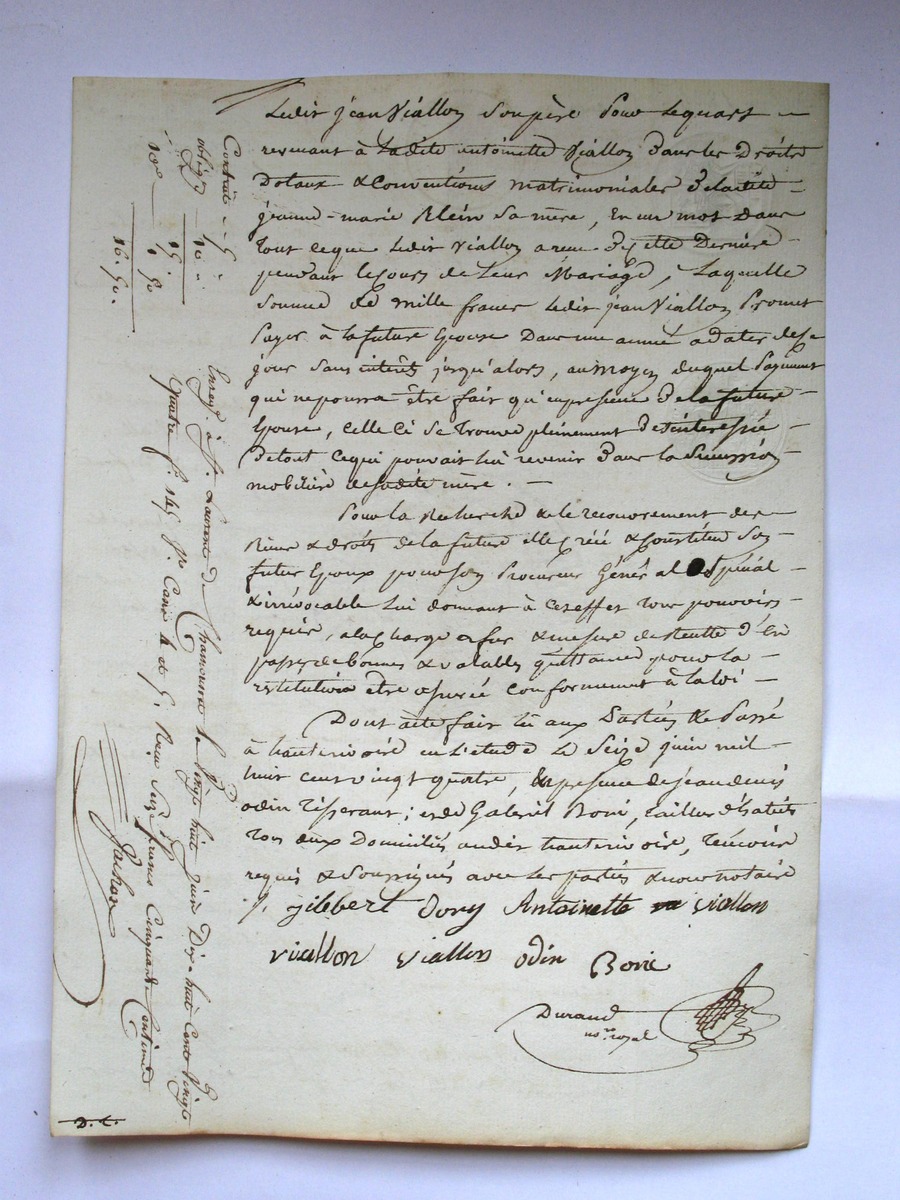 Ledit jean Viallon son père pour le quart
revenant à Ladite antoinette Viallon dans les Droits
Dotaux & Conventions matrimoniales de ladite
jeanne-marie Klein sa mère, En un mot dans
tout ce que Ledit Viallon a reçu de cette Dernière
pendant le cours de Leur Mariage, Laquelle
Somme de mille francs Ledit jean Viallon Promet
payer à la future Epouse Dans une année a dater de ce
jour sans intérêts jusqu'alors, au moyen duquel payement
qui ne pourra être fait qu'en présence de la future
Epouse, celle ci se trouve pleinement Désintéressée
De tout ce qui pouvait lui revenir dans la Succession
mobilière de sadite mère. —
Pour la Recherche & le recouvrement des
Biens & droits de la future elle créé & Constitue son
futur Epoux pour son Procureur Général & spécial
& irrévocable Lui donnant à cet effet tous pouvoirs
requis, a la Charge a fur & mesure de recette d'En
passer de bonnes & valables quittances pour la
restitution être assurée conformement à la loi —
Dont acte fait lu aux Parties & Passé
à hauterivoire en L'etude Le Seize juin mil
huit cent vingt quatre, En présence de jean denis
odin tisserant; et de Gabriel Boric, tailleur d'habits
tous deux Domiciliés audit hauterivoire, témoins
requis & Soussignés avec les parties & nous notaire
/. gilbert Dory Antoinette viallon
viallon viallon odin Boric
Durand
no.re royal
Contrat — 5 "
oblig.on — 10 "
15 "
10e — 1. 50
16. 50.
Enreg. à S.t Laurent de Chamousset le vingt huit juin Dix-huit Cent vingt
quatre f.o 145 r.o Cases 4 et 5. Reçu Seize francs Cinquante Centimes
D. C.